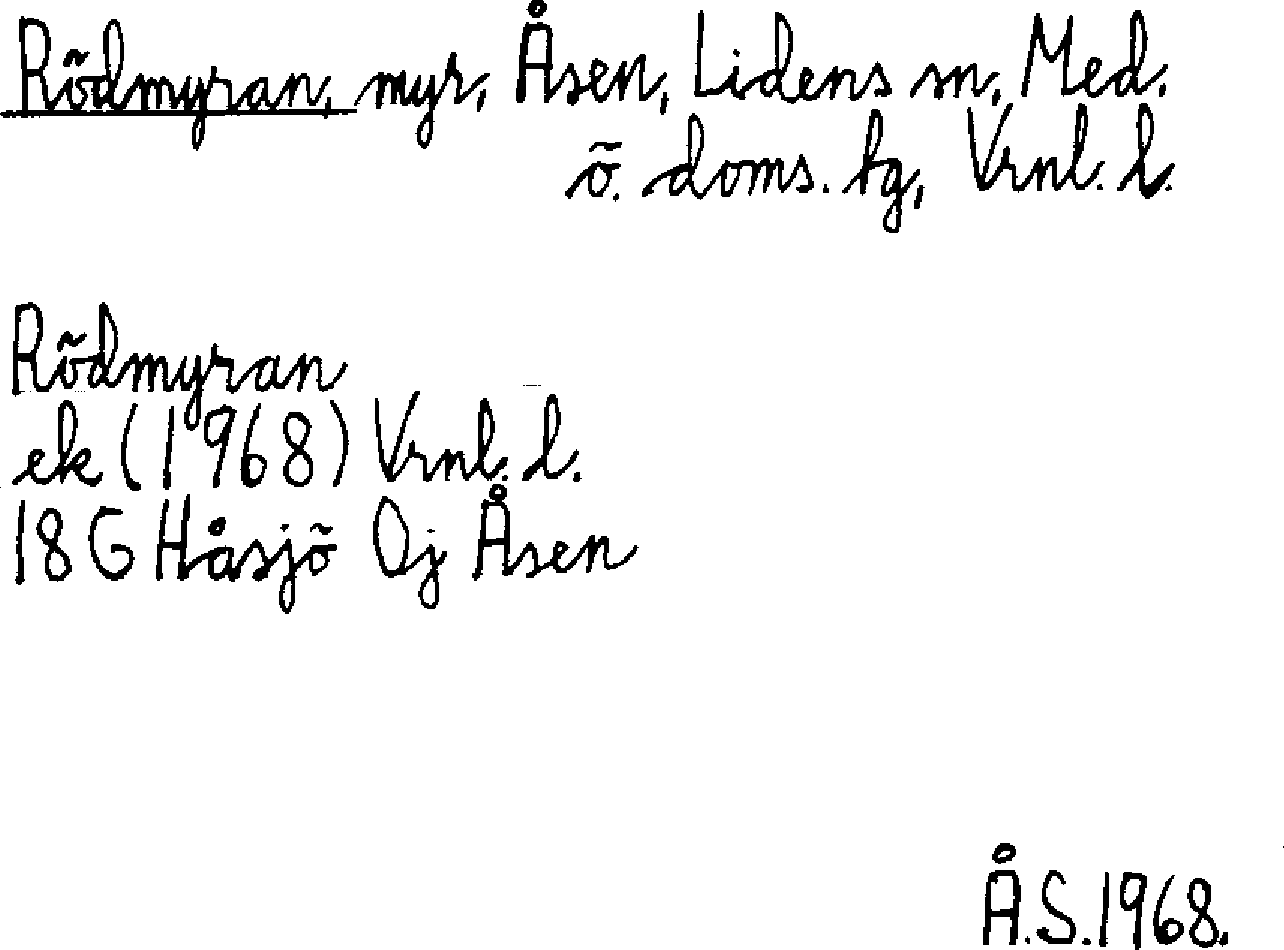 Rödmyran, myr, Åsen, Lidens sn, Med.
ö. doms. tg, Vrnl. l.
Rödmyran
ek (1968) Vrnl. l.
18 G Håsjö 0j Åsen
Å.S. 1968.